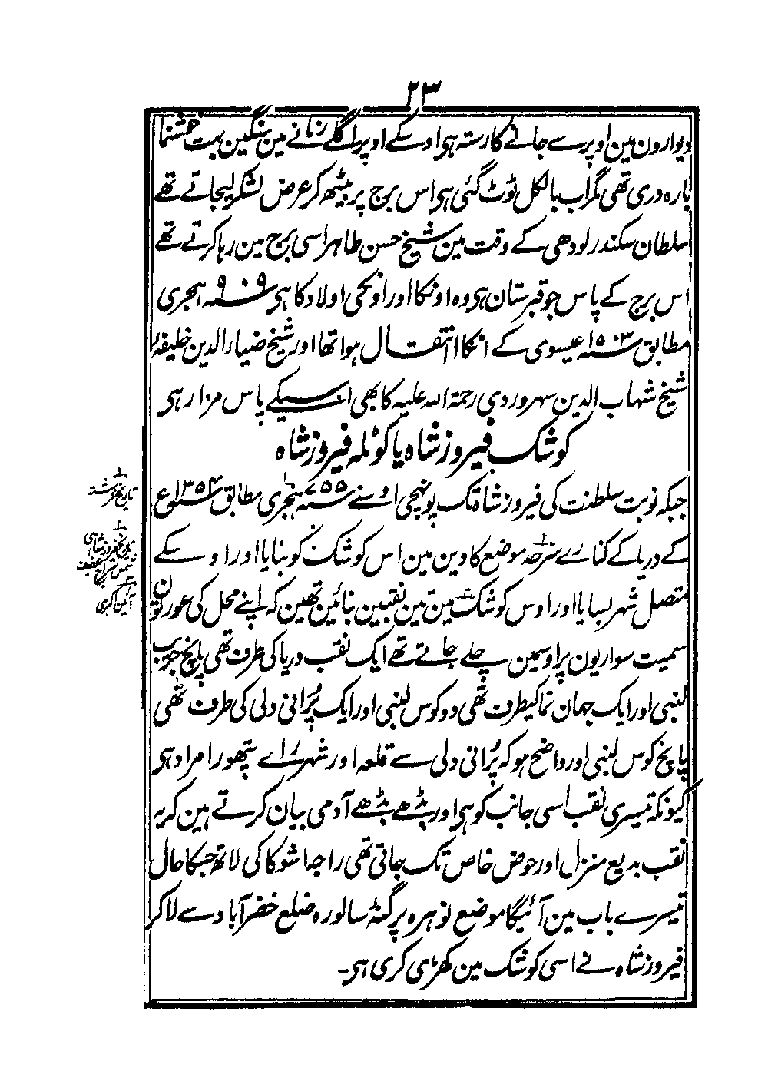 ۲۳
دیوارون مین اوپرسے جانے کا رستہ ہی اور اسکے اوپر اگلے زمانے مین سنگین بہت خوشنما
بارہ دری تھی مگر اب بالکل ٹوٹ گئی ہی اس برج پر بیٹھ کر عرض لشکر لیجاتے تھے
سلطان سکندر لودھی کے وقت مین شیخ حسن طاہر اسی برج مین رہا کرتے تھے
اس برج کے پاس جو قبرستان ہی وہ اونکا اور اونکی اولاد کا ہی ۹۰۹ سنہ ہجری
مطابق ۱۵۰۳ سنہ عیسوی کے انکا انتقال ہوا تھا اور شیخ ضیاء الدین خلیفہ
شیخ شہاب الدین سہروردی رحمۃ اللہ علیہ کا بھی اسیکے پاس مزار ہی
کوشک فیروز شاہ یا کوٹلہ فیروز شاہ
جبکہ نوبت سلطنت کی فیروز شاہ تک پونہچی اوسنے ۷۵۵ سنہ ہجری مطابق ۱۳۵۴ سنہ ع
کے دریا کے کنارے سرحد موضع کادین مین اس کوشک کو بنایا اور اوسکے
متصل شہر بسایا اور اوس کوشک مین تین نقبین بنائین تھین کہ اپنے محل کی عورتون
سمیت سواریون پر اوسمین چلے جاتے تھے ایک نقب دریا کی طرف تھی پانچ جریب
لنبی اور ایک جہان نما کیطرف تھی دو کوس لنبی اور ایک پُرانی دلی کی طرف تھی
پانچ کوس لنبی اور واضح ہو کہ پُرانی دلی سے قلعہ اور شہر راے پتھورا مراد ہی
کیونکہ تیسری نقب اسی جانب کو ہی اور بڈھے بڈھے آدمی بیان کرتے ہین کہ یہ
نقب بدیع منزل اور حوض خاص تک جاتی تھی راجا شوکا کی لاٹھ جسکا حال
تیسرے باب مین آئیگا موضع نوہرہ پرگنہ سالورہ ضلع خضرآباد سے لا کر
فیروز شاہ نے اسی کوشک مین کھڑی کری ہی۔
تاریخ فرشتہ
تاریخ فیروز شاہی
شمس سراج عفیف
آئین اکبری